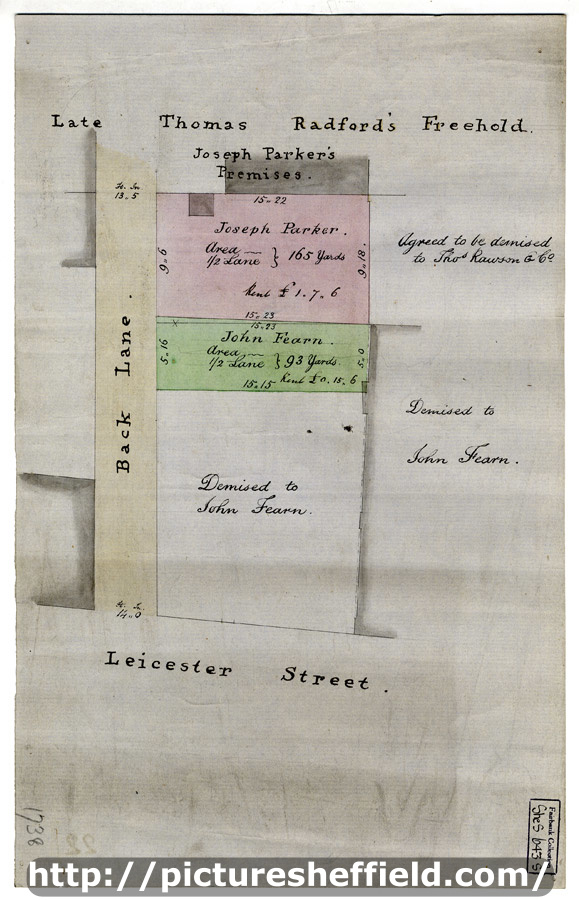 Late Thomas Radford's Freehold.
Joseph Parker's
Premises.
Ft. In
13.5
15.. 22
Joseph Parker.
Area
1/2 Lane } 165 Yards
9.. 6
9.. 18.
Rent £1.. 7.. 6
15.. 23
Agreed to be demised
to Thos Rawson & Co.
15.. 23
John Fearn.
Area
1/2 Lane } 93 Yards.
5.. 16
5.. 0
Rent £0.. 15.. 6
15.. 15
Back Lane.
Demised to
John Fearn.
Demised to
John Fearn.
14.. 0
Leicester Street.
1738
22
Fairbank Collection
She S 643 S
http://picturesheffield.com/